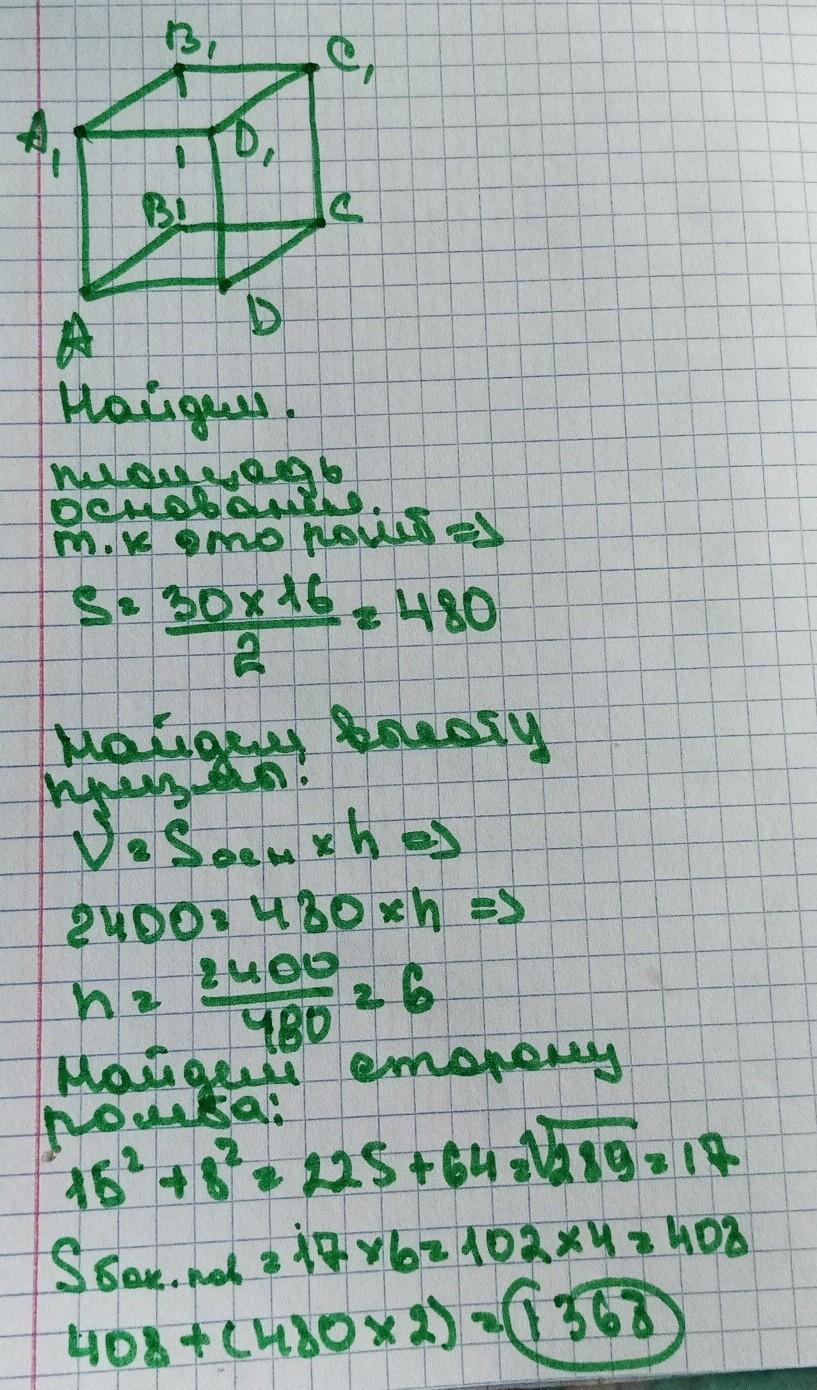 B₁ C₁
A₁ D₁
B C
A D
Найдем.
площадь
основания.
т.к это ромб =>
S = 30 × 16 / 2 = 480
Найдем высоту
призмы:
V = Sосн × h =>
2400 = 480 × h =>
h = 2400 / 480 = 6
Найдем сторону
ромба:
15² + 8² = 225 + 64 = √289 = 17
Sбок. пов = 17 × 6 = 102 × 4 = 408
408 + (480 × 2) = 1368